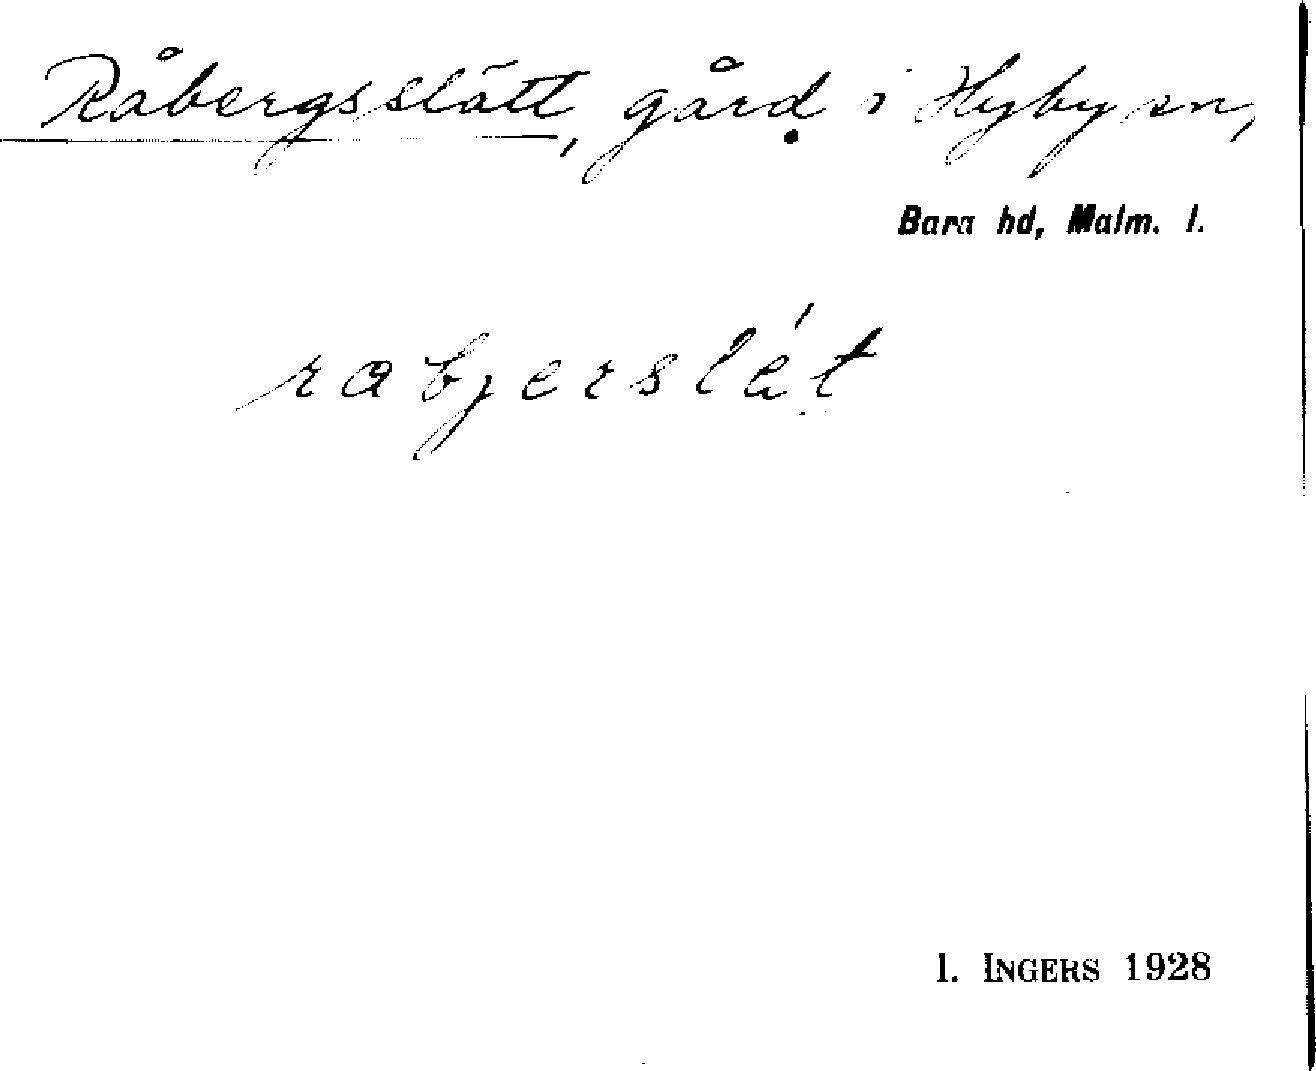 Råbergsslätt, gård i Hyby sn,
Bara hd, Malm. l.
rabjerslét
I. INGERS 1928